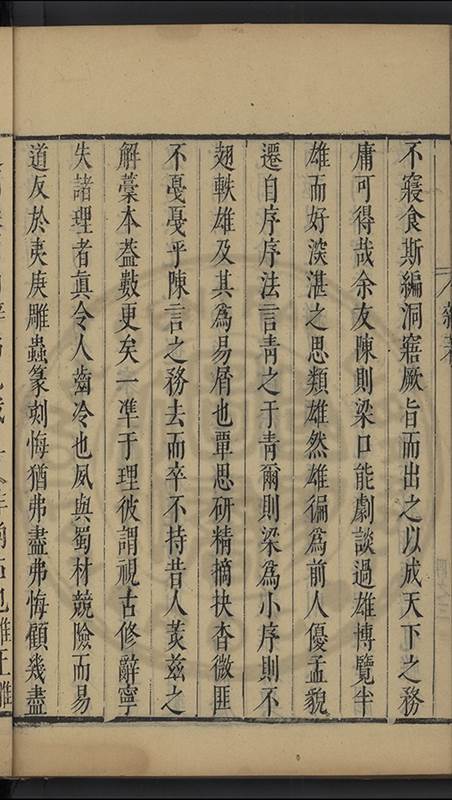 不寢食斯編洞窹厥旨而出之以成天下之務
庸可得哉余友陳則梁口能劇談過雄博覽半
雄而好湥湛之思類雄然雄徧為前人優孟貌
遷自序序法言青之于青爾則梁為小序則不
翅軼雄及其為易屑也覃思研精摘抉杳微匪
不戞戞乎陳言之務去而卒不持昔人荄兹之
解藁本葢數更矣一準于理彼謂視古修辭寧
失諸理者眞令人齒冷也夙與蜀材競險而易
道反於夷庚雕蟲篆刻悔猶弗盡弗悔顧幾盡